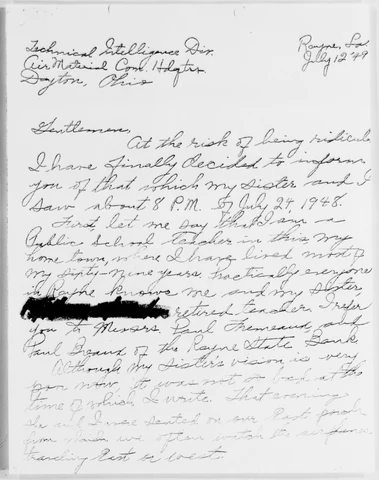 Technical Intelligence Div.
Air Material Com. Hdqtrs.
Dayton, Ohio
Rayne, La.
July 12 '49
Gentlemen,
At the risk of being ridicule
I have finally decided to inform
you of that which my sister and I
saw about 8 P.M. of July 24, 1948.
First, let me say that I am a
Public School teacher in this, my
home town, where I have lived most of
my sixty-nine years. Practically everyone
in Rayne knows me and my sister,
retired teacher. I refer
you to Messrs. Paul and
Paul of the Rayne State Bank
Although my sister's vision is very
poor now, it was not so bad at the
time of which I write. That evening
she and I were seated on our East porch
from which we often watch the airplanes
traveling East or West.